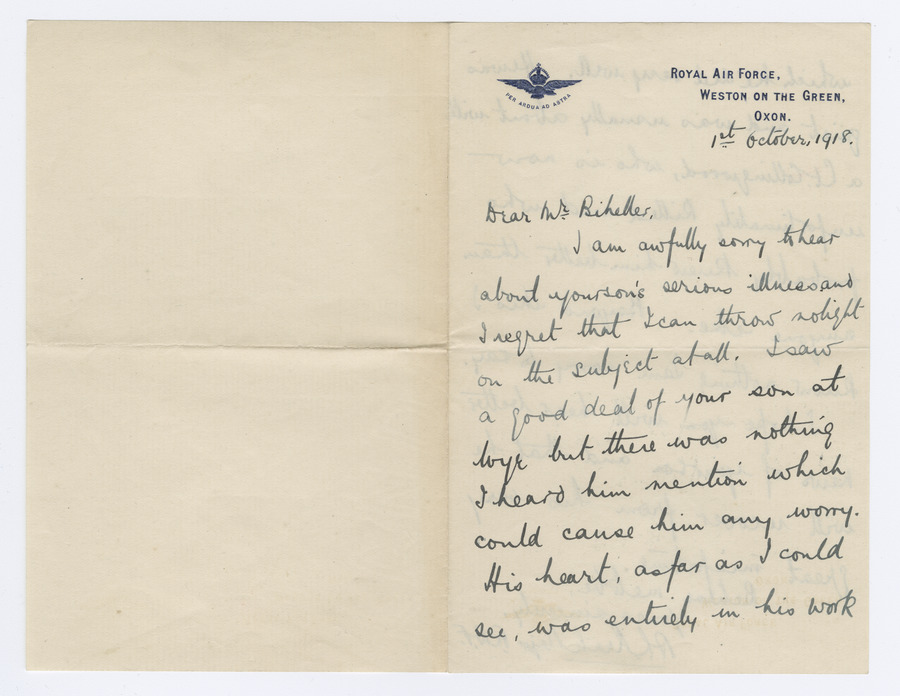 PER ARDUA AD ASTRA
ROYAL AIR FORCE,
WESTON ON THE GREEN,
OXON.
1st October, 1918.
Dear Mr. Biheller,
I am awfully sorry to hear
about your son's serious illness and
I regret that I can throw no light
on the subject at all. I saw
a good deal of your son at
Wye but there was nothing
I heard him mention which
could cause him any worry.
His heart, as far as I could
see, was entirely in his work